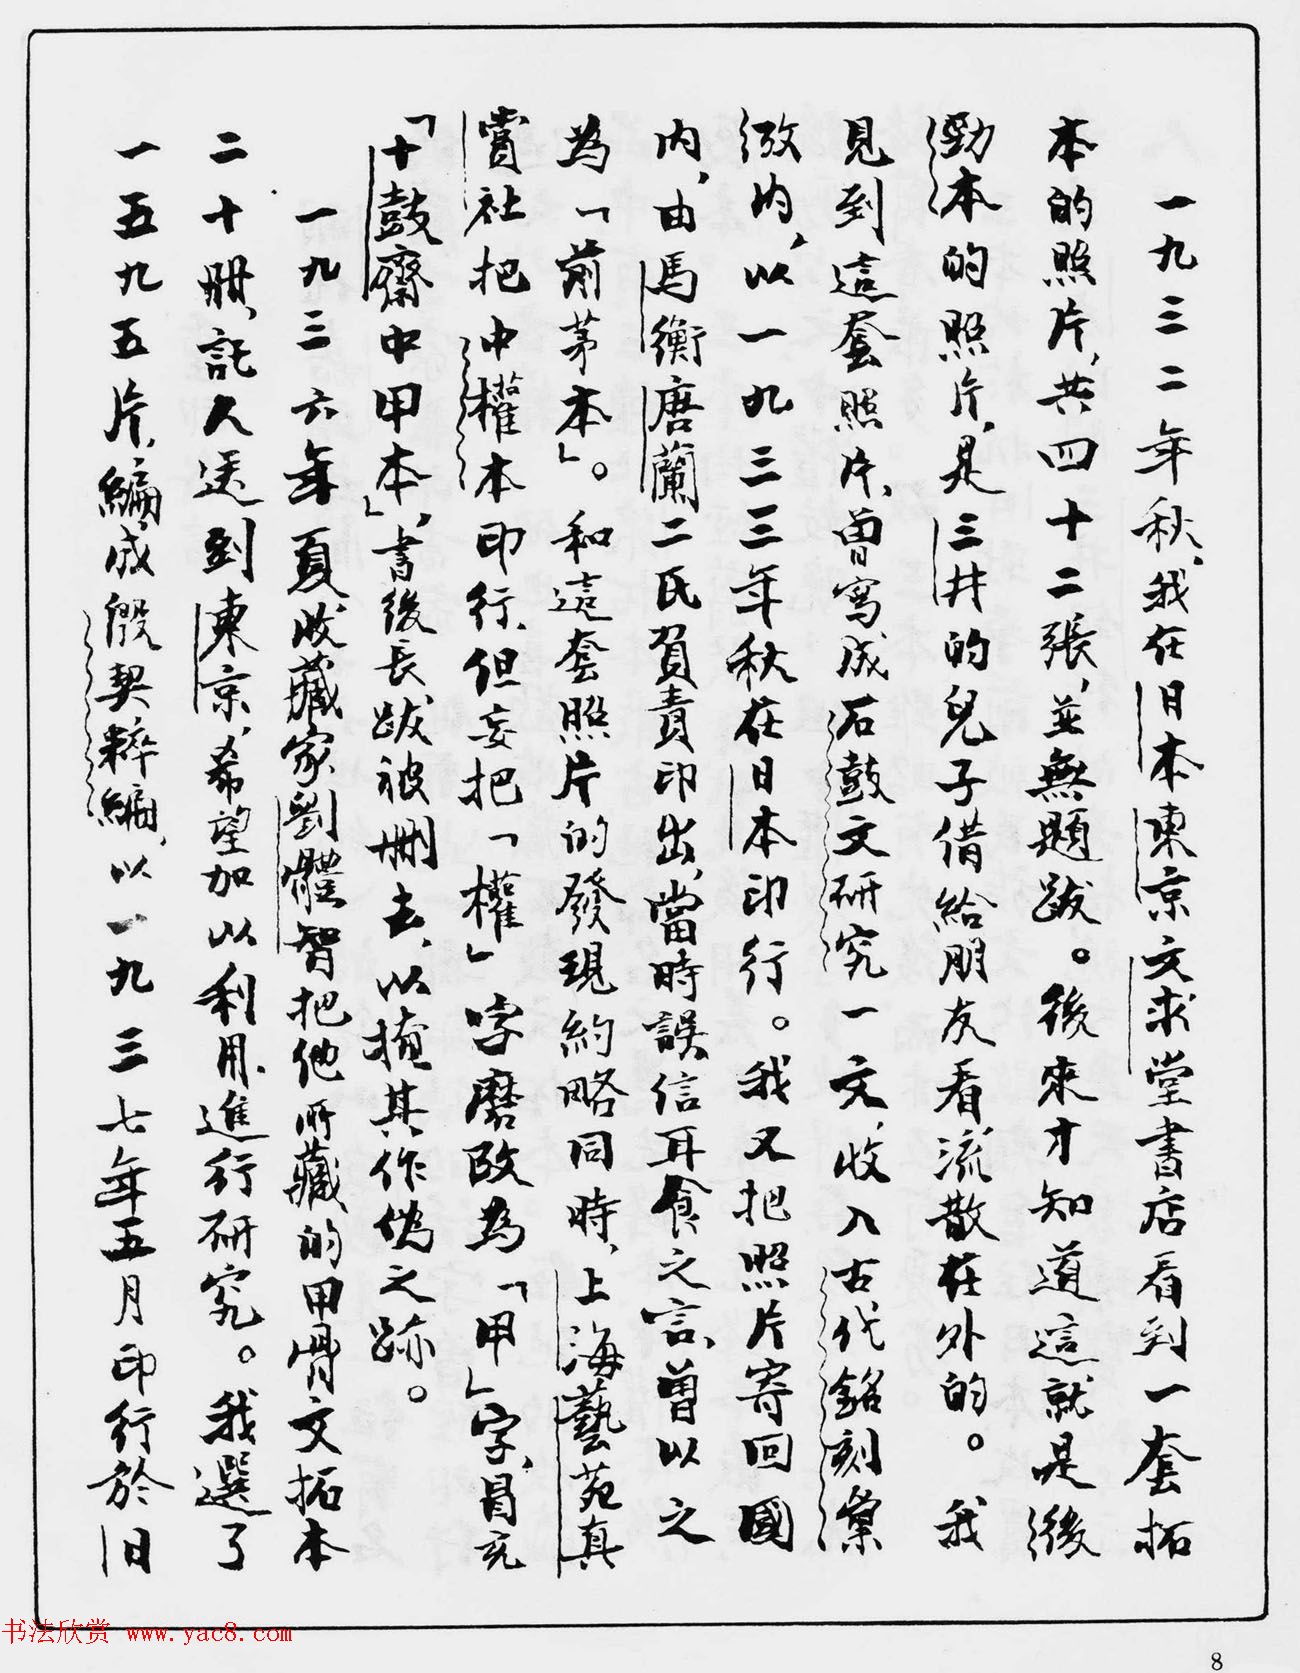 一九三二年秋、我在日本東京文求堂書店看到一套拓
本的照片，共四十二張，並無題跋。後來才知道這就是後
勁本的照片，是三井的兒子借給朋友看，流散在外的。我
見到這套照片、曾寫成石鼓文研究一文，收入古代銘刻彙
攷內，以一九三三年秋在日本印行。我又把照片寄回國
內，由馬衡唐蘭二氏負責印出，當時誤信耳食之言、曾以之
為「前茅本」。和這套照片的發現約略同時，上海藝苑真
賞社把中權本印行、但妄把「權」字磨改為「甲」字，冒充
「十鼓齋中甲本」，書後長跋被刪去、以掩其作偽之跡。
一九三六年夏收藏家劉體智把他所藏的甲骨文拓本
二十冊，託人送到東京，希望加以利用、進行研究。我選了
一五九五片，編成殷契粹編，以一九三七年五月印行於日
书法欣赏 www.yac8.com
8